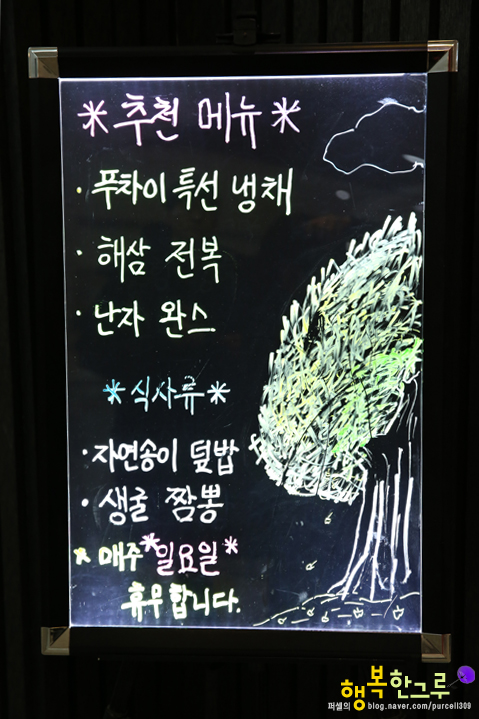 *추천 메뉴*
· 푸차이 특선 냉채
· 해삼 전복
· 난자 완스
*식사류*
· 자연송이 덮밥
· 생굴 짬뽕
* 매주 *일요일*
휴무합니다.
행복한그루
퍼셀의 blog.naver.com/purcell309